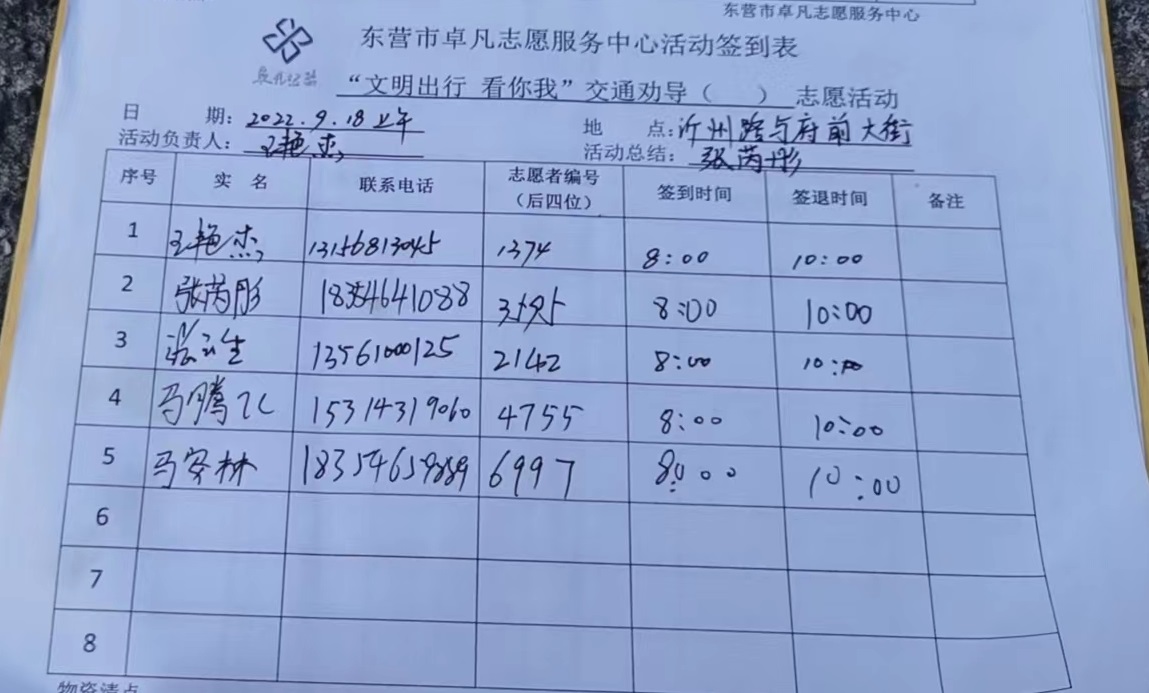 东营市卓凡志愿服务中心
东营市卓凡志愿服务中心活动签到表
“文明出行 看你我”交通劝导（ ） 志愿活动
日 期：2022.9.18上午 地 点：沂州路与府前大街
活动负责人：王艳杰 活动总结：张芮彤
序号 实 名 联系电话 志愿者编号（后四位） 签到时间 签退时间 备注
1 王艳杰 13156813045 1374 8:00 10:00
2 张芮彤 18354641088 8:00 10:00
3 13561000125 2142 8:00 10:00
4 马腾飞 15314319060 4755 8:00 10:00
5 马安林 18354659889 6997 8:00 10:00
6
7
8
物资清点